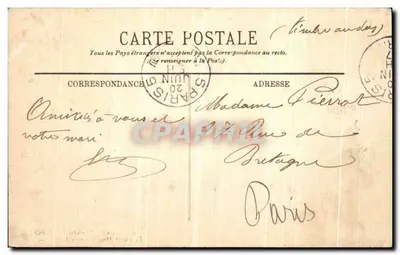 CARTE POSTALE
Tous les Pays étrangers n'acceptent pas la Correspondance au recto.
(Se renseigner à la Poste).
(timbre au dos)
CORRESPONDANCE
ADRESSE
PARIS
20
JUIN
Amitiés à vous et
votre mari
Madame Pierrat
Rue de
Bretagne
Paris
CPAPHIL